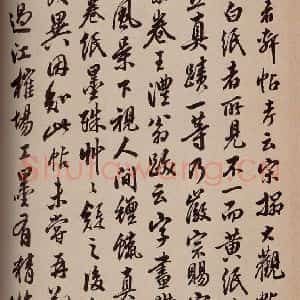 軒帖考云宋搨大觀帖
白紙者所見不一而黃紙
真蹟一等乃宗賜
卷王澧翁跋云字畫
風景下視人間真
卷紙墨殊艸之後
異因知此帖未嘗再
過江榷場工墨有精